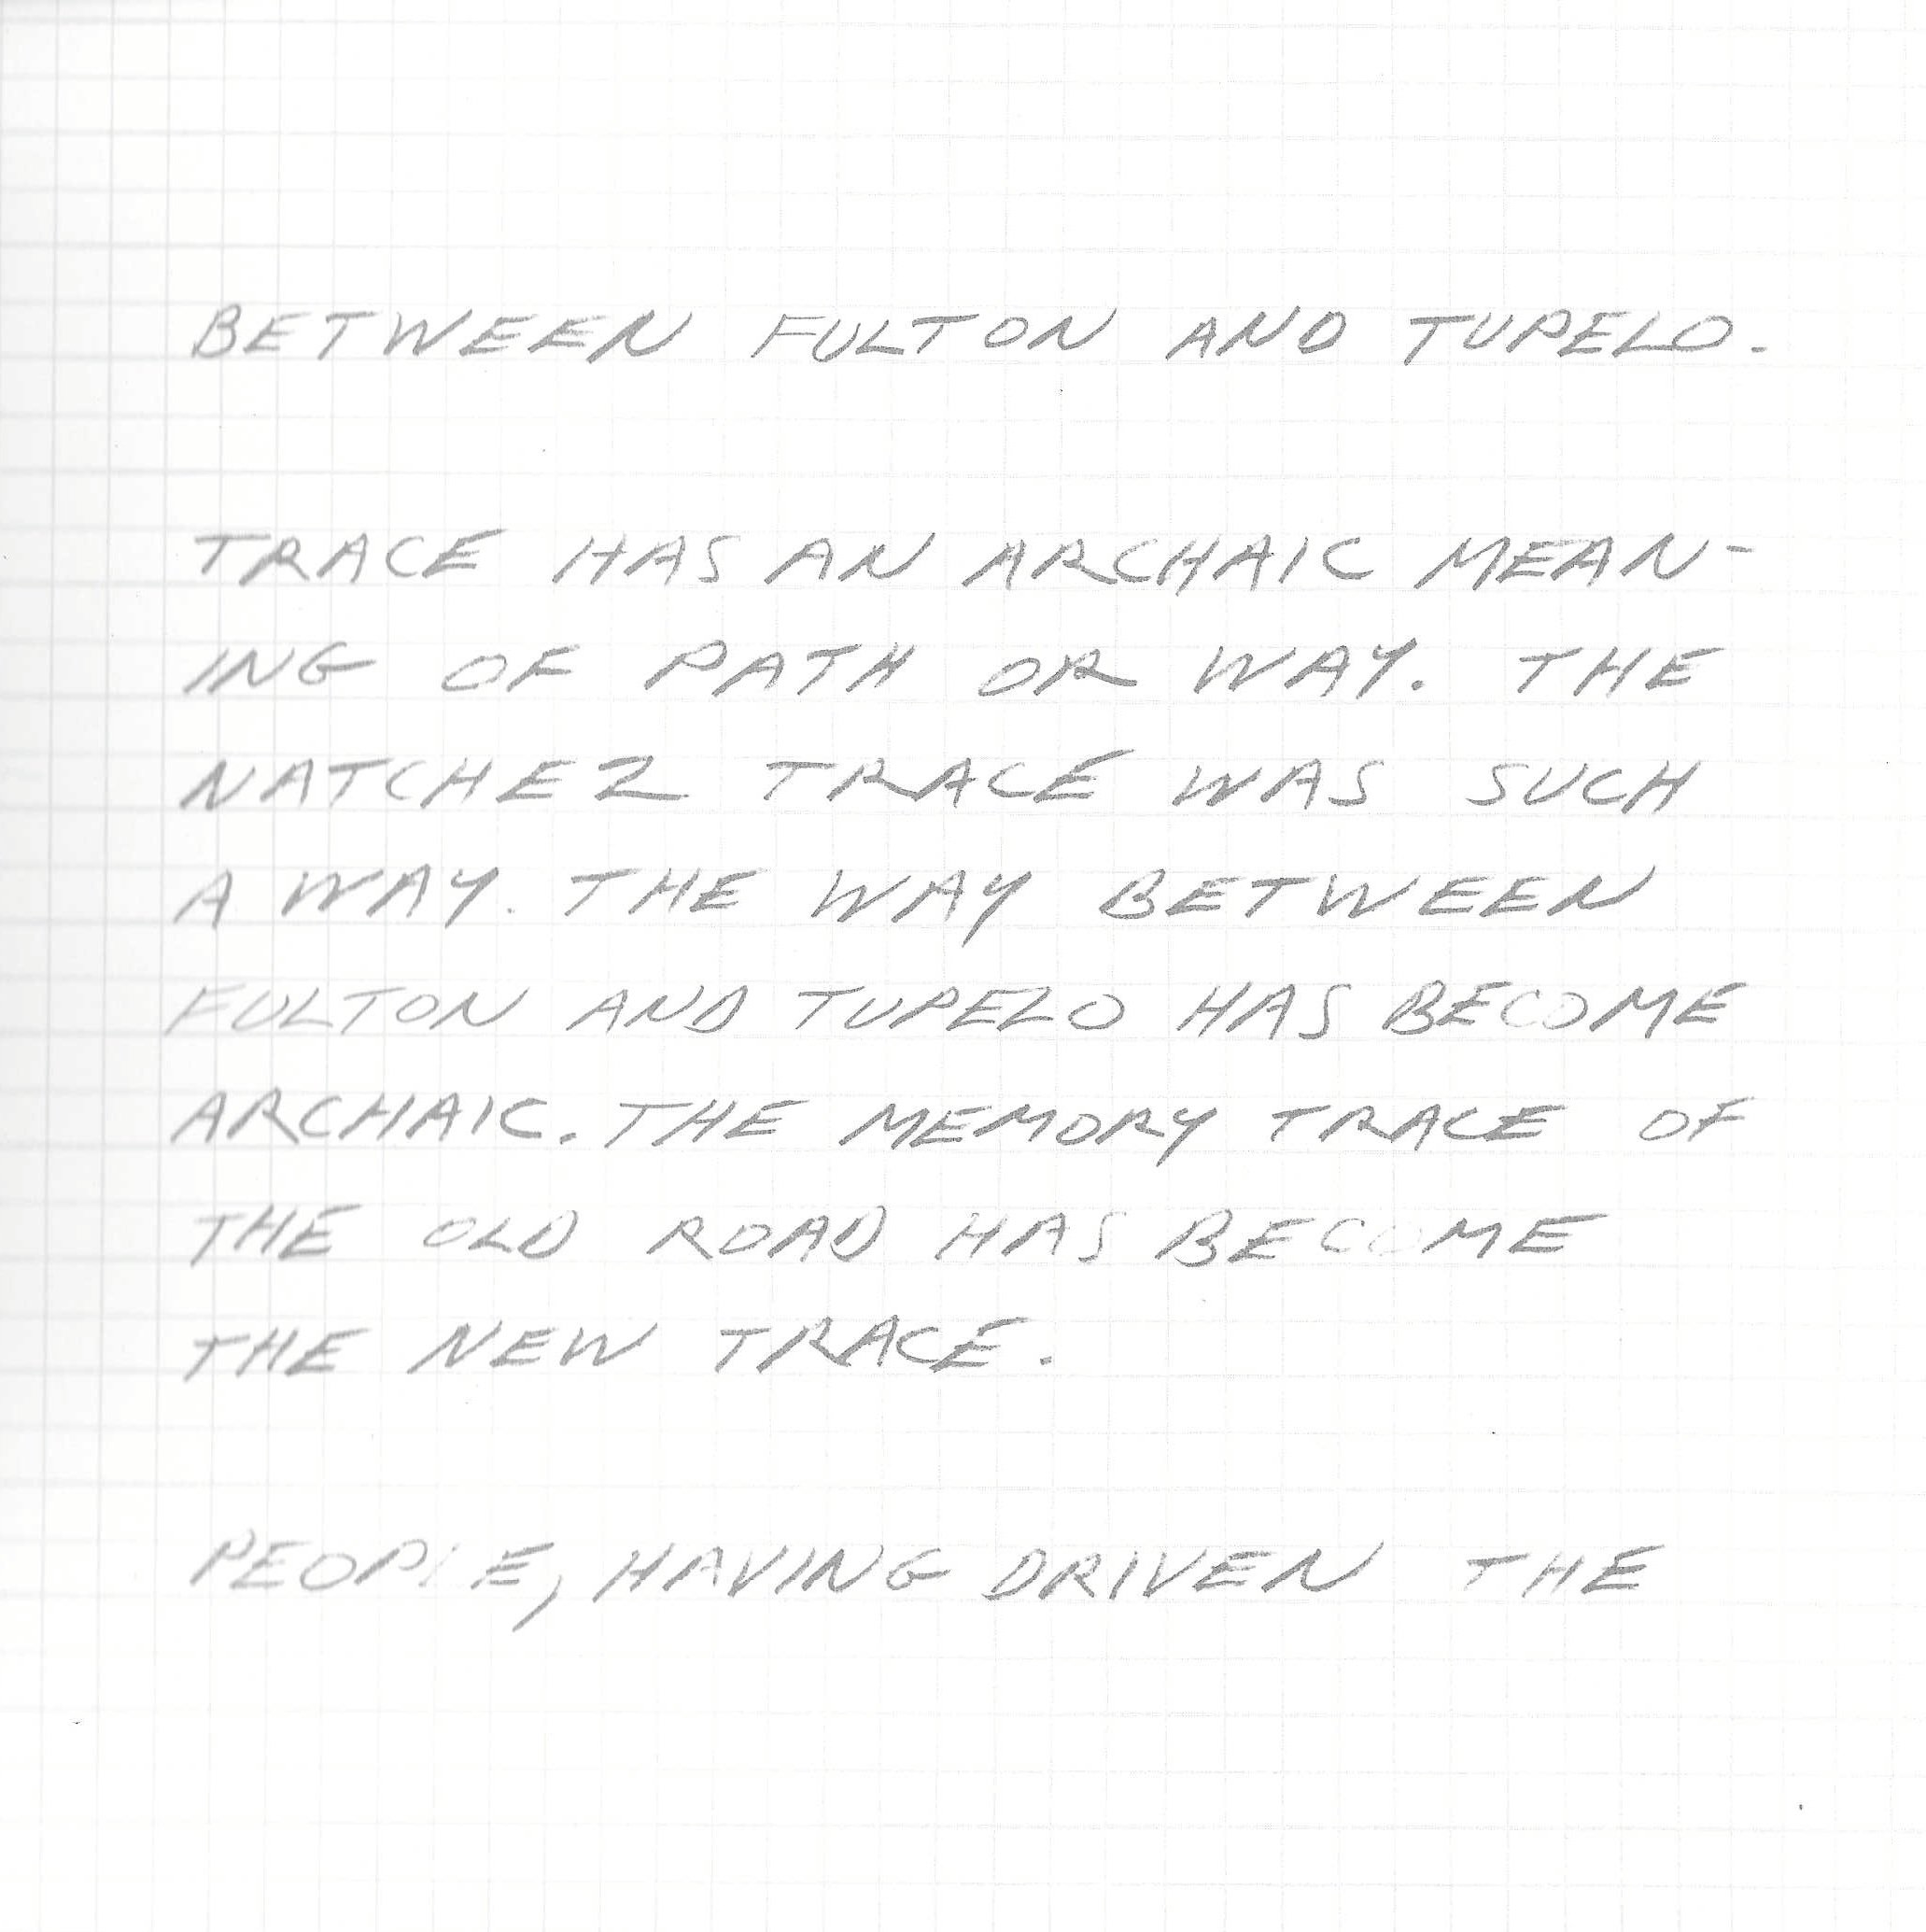 BETWEEN FULTON AND TUPELO.
TRACE HAS AN ARCHAIC MEAN-
ING OF PATH OR WAY. THE
NATCHEZ TRACE WAS SUCH
A WAY. THE WAY BETWEEN
FULTON AND TUPELO HAS BECOME
ARCHAIC. THE MEMORY TRACE OF
THE OLD ROAD HAS BECOME
THE NEW TRACE.
PEOPLE, HAVING DRIVEN THE